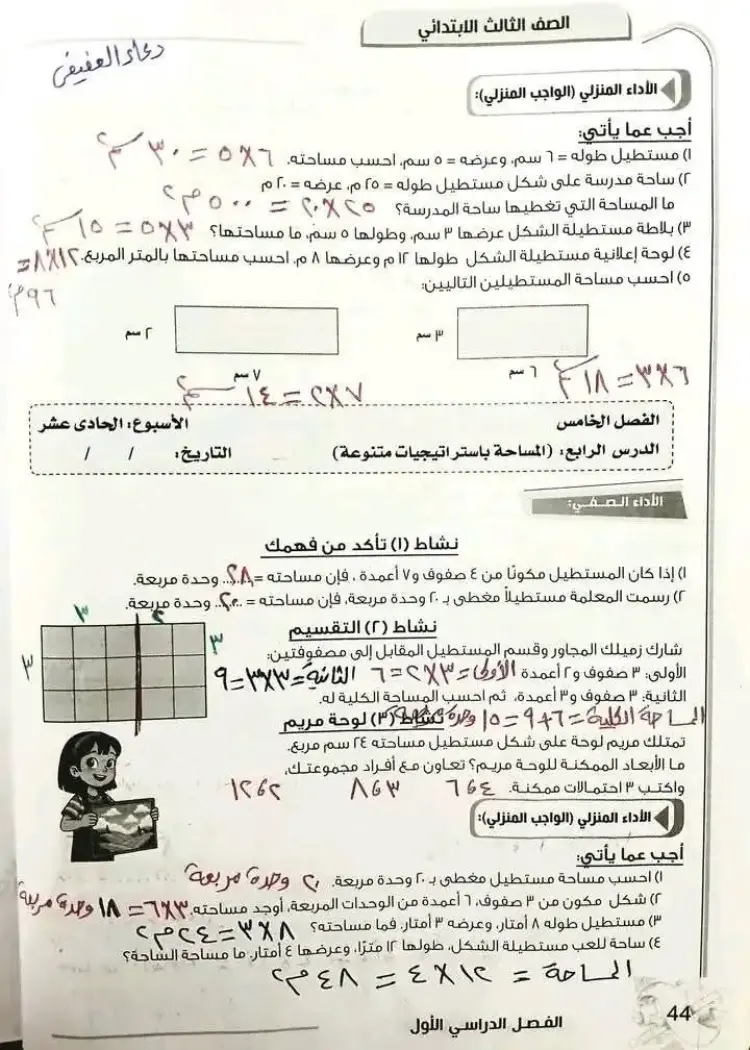 الصف الثالث الابتدائي
دعاء العفيفي
الأداء المنزلي (الواجب المنزلي):
أجب عما يأتي:
١) مستطيل طوله = ٦ سم، وعرضه = ٥ سم، احسب مساحته. ٥×٦ = ٣٠ سم٢
٢) ساحة مدرسة على شكل مستطيل طوله = ٢٥ م، عرضه = ٢٠ م
ما المساحة التي تغطيها ساحة المدرسة؟ ٢٠×٢٥ = ٥٠٠ م٢
٣) بلاطة مستطيلة الشكل عرضها ٣ سم، وطولها ٥ سم، ما مساحتها؟ ٥×٣ = ١٥ سم٢
٤) لوحة إعلانية مستطيلة الشكل طولها ١٢ م وعرضها ٨ م، احسب مساحتها بالمتر المربع. ٨×١٢ =
٩٦ م٢
٥) احسب مساحة المستطيلين التاليين:
٣ سم
٢ سم
٦ سم
٧ سم
٣×٦ = ١٨ سم٢
٢×٧ = ١٤ سم٢
الفصل الخامس
الأسبوع: الحادى عشر
الدرس الرابع: (المساحة باستراتيجيات متنوعة)
التاريخ: / /
الأداء الصفي:
نشاط (١) تأكد من فهمك
١) إذا كان المستطيل مكونًا من ٤ صفوف و٧ أعمدة ، فإن مساحته = ٢٨ وحدة مربعة.
٢) رسمت المعلمة مستطيلًا مغطى بـ ٢٠ وحدة مربعة، فإن مساحته = ٢٠ وحدة مربعة.
٣ ٢
٣ ٣
نشاط (٢) التقسيم
شارك زميلك المجاور وقسم المستطيل المقابل إلى مصفوفتين:
الأولى: ٣ صفوف و٢ أعمدة الأولى = ٣×٢ = ٦ الثانية = ٣×٣ = ٩
الثانية: ٣ صفوف و٣ أعمدة، ثم احسب المساحة الكلية له.
المساحة الكلية = ٦+٩ = ١٥ وحدة مربعة
نشاط (٣) لوحة مريم
تمتلك مريم لوحة على شكل مستطيل مساحته ٢٤ سم مربع.
ما الأبعاد الممكنة للوحة مريم؟ تعاون مع أفراد مجموعتك،
واكتب ٣ احتمالات ممكنة. ٤ و ٦ ٣ و ٨ ٢ و ١٢
الأداء المنزلي (الواجب المنزلي):
أجب عما يأتي:
١) احسب مساحة مستطيل مغطى بـ ٢٠ وحدة مربعة. ٢٠ وحدة مربعة
٢) شكل مكون من ٣ صفوف، ٦ أعمدة من الوحدات المربعة، أوجد مساحته. ٣×٦ = ١٨ وحدة مربعة
٣) مستطيل طوله ٨ أمتار، وعرضه ٣ أمتار، فما مساحته؟ ٨×٣ = ٢٤ م٢
٤) ساحة للعب مستطيلة الشكل، طولها ١٢ مترًا، وعرضها ٤ أمتار، ما مساحة الساحة؟
المساحة = ١٢×٤ = ٤٨ م٢
44
الفصل الدراسي الأول